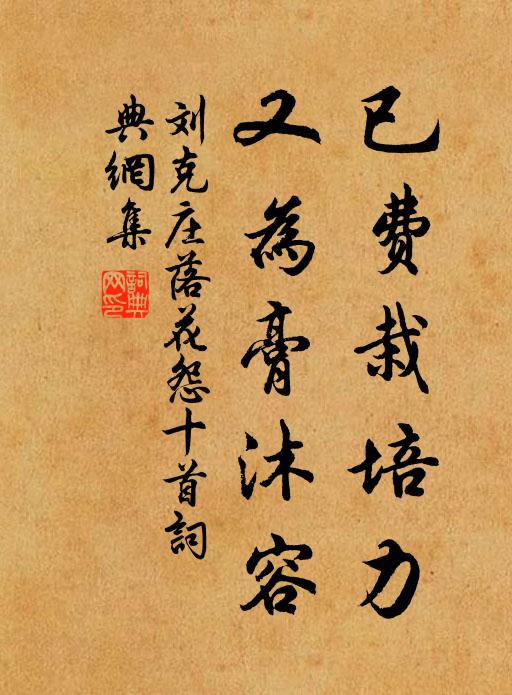 已费栽培力
又為膏沐容
刘克庄落花怨十首詞
典網集
詞典网印